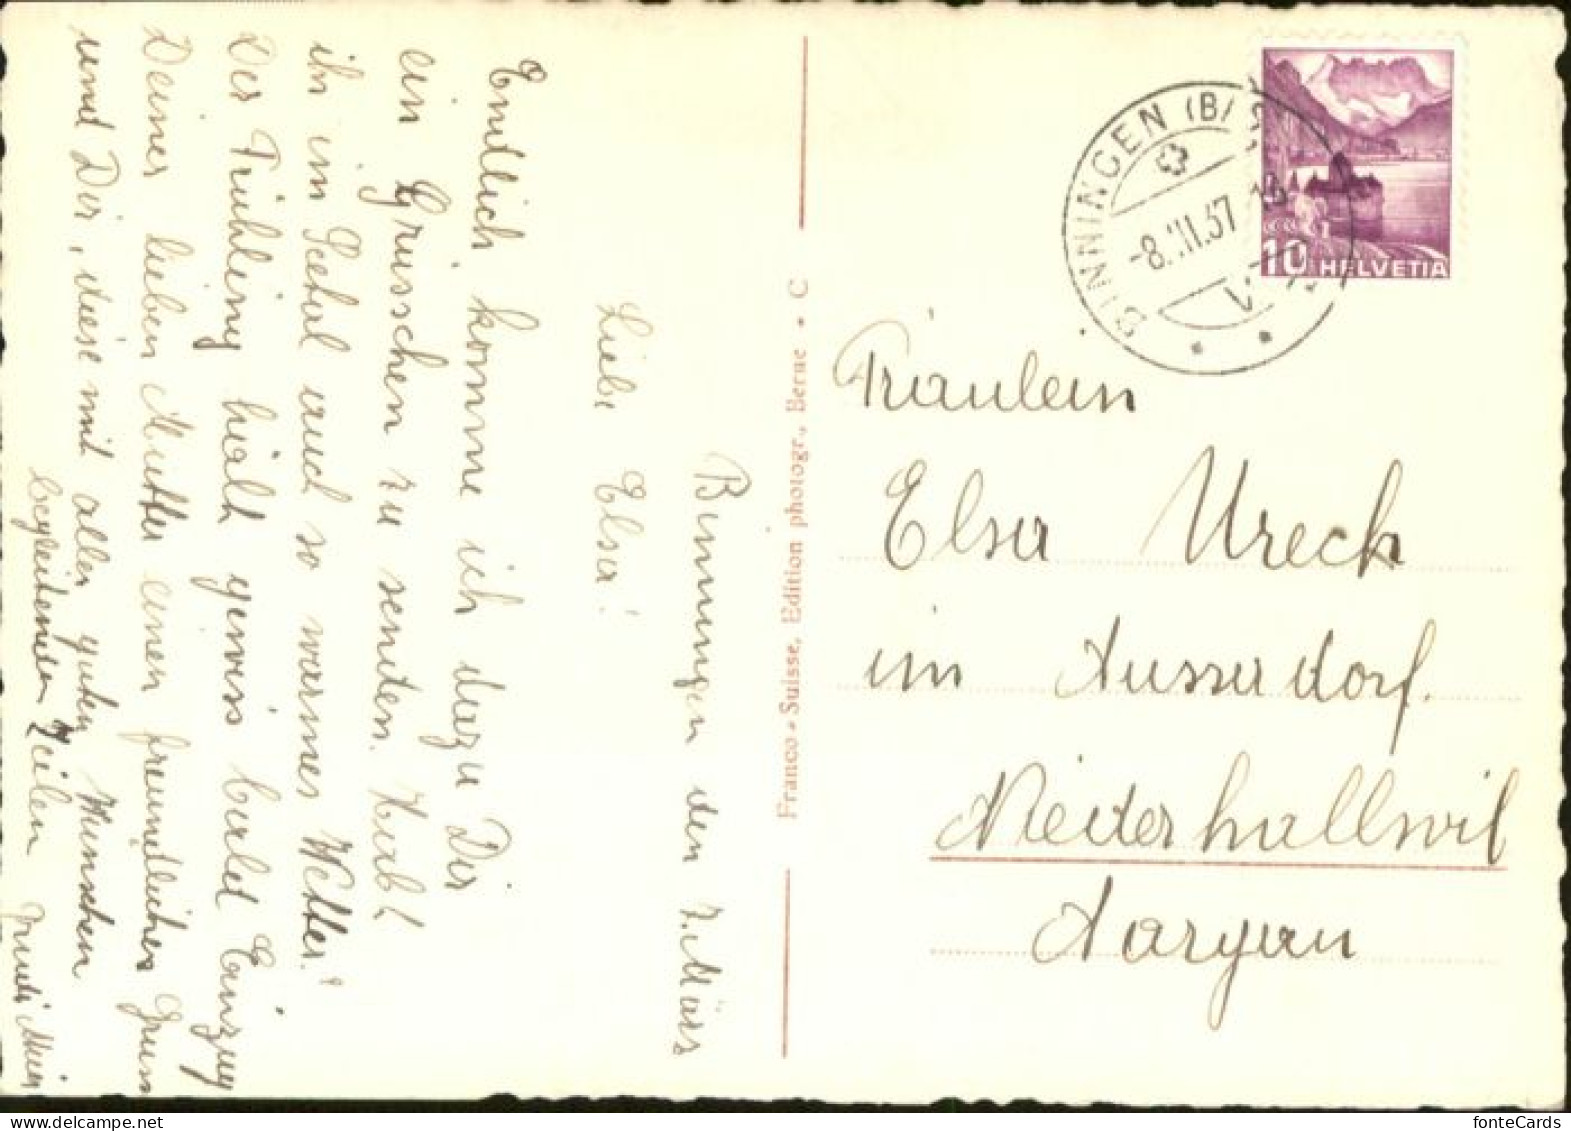 Binningen den 7. März
Liebe Elsa!
Endlich komme ich dazu Dir
ein Grüsschen zu senden. Habt
ihr im Seetal auch so warmes Wetter?
Der Frühling hält gewiss bald Einzug
Deiner lieben Mutter einen freundlichen Gruss
und Dir, diese mit aller guten Wünschen
begleitenden Zeilen Trudi Meier
Franco-Suisse, Edition photogr., Berne • C
BINNINGEN (B/
-8.III.37
10 HELVETIA
Fräulein
Elsa Urech
im Ausserdorf.
Niederhallwil
Aargau
fonteCards